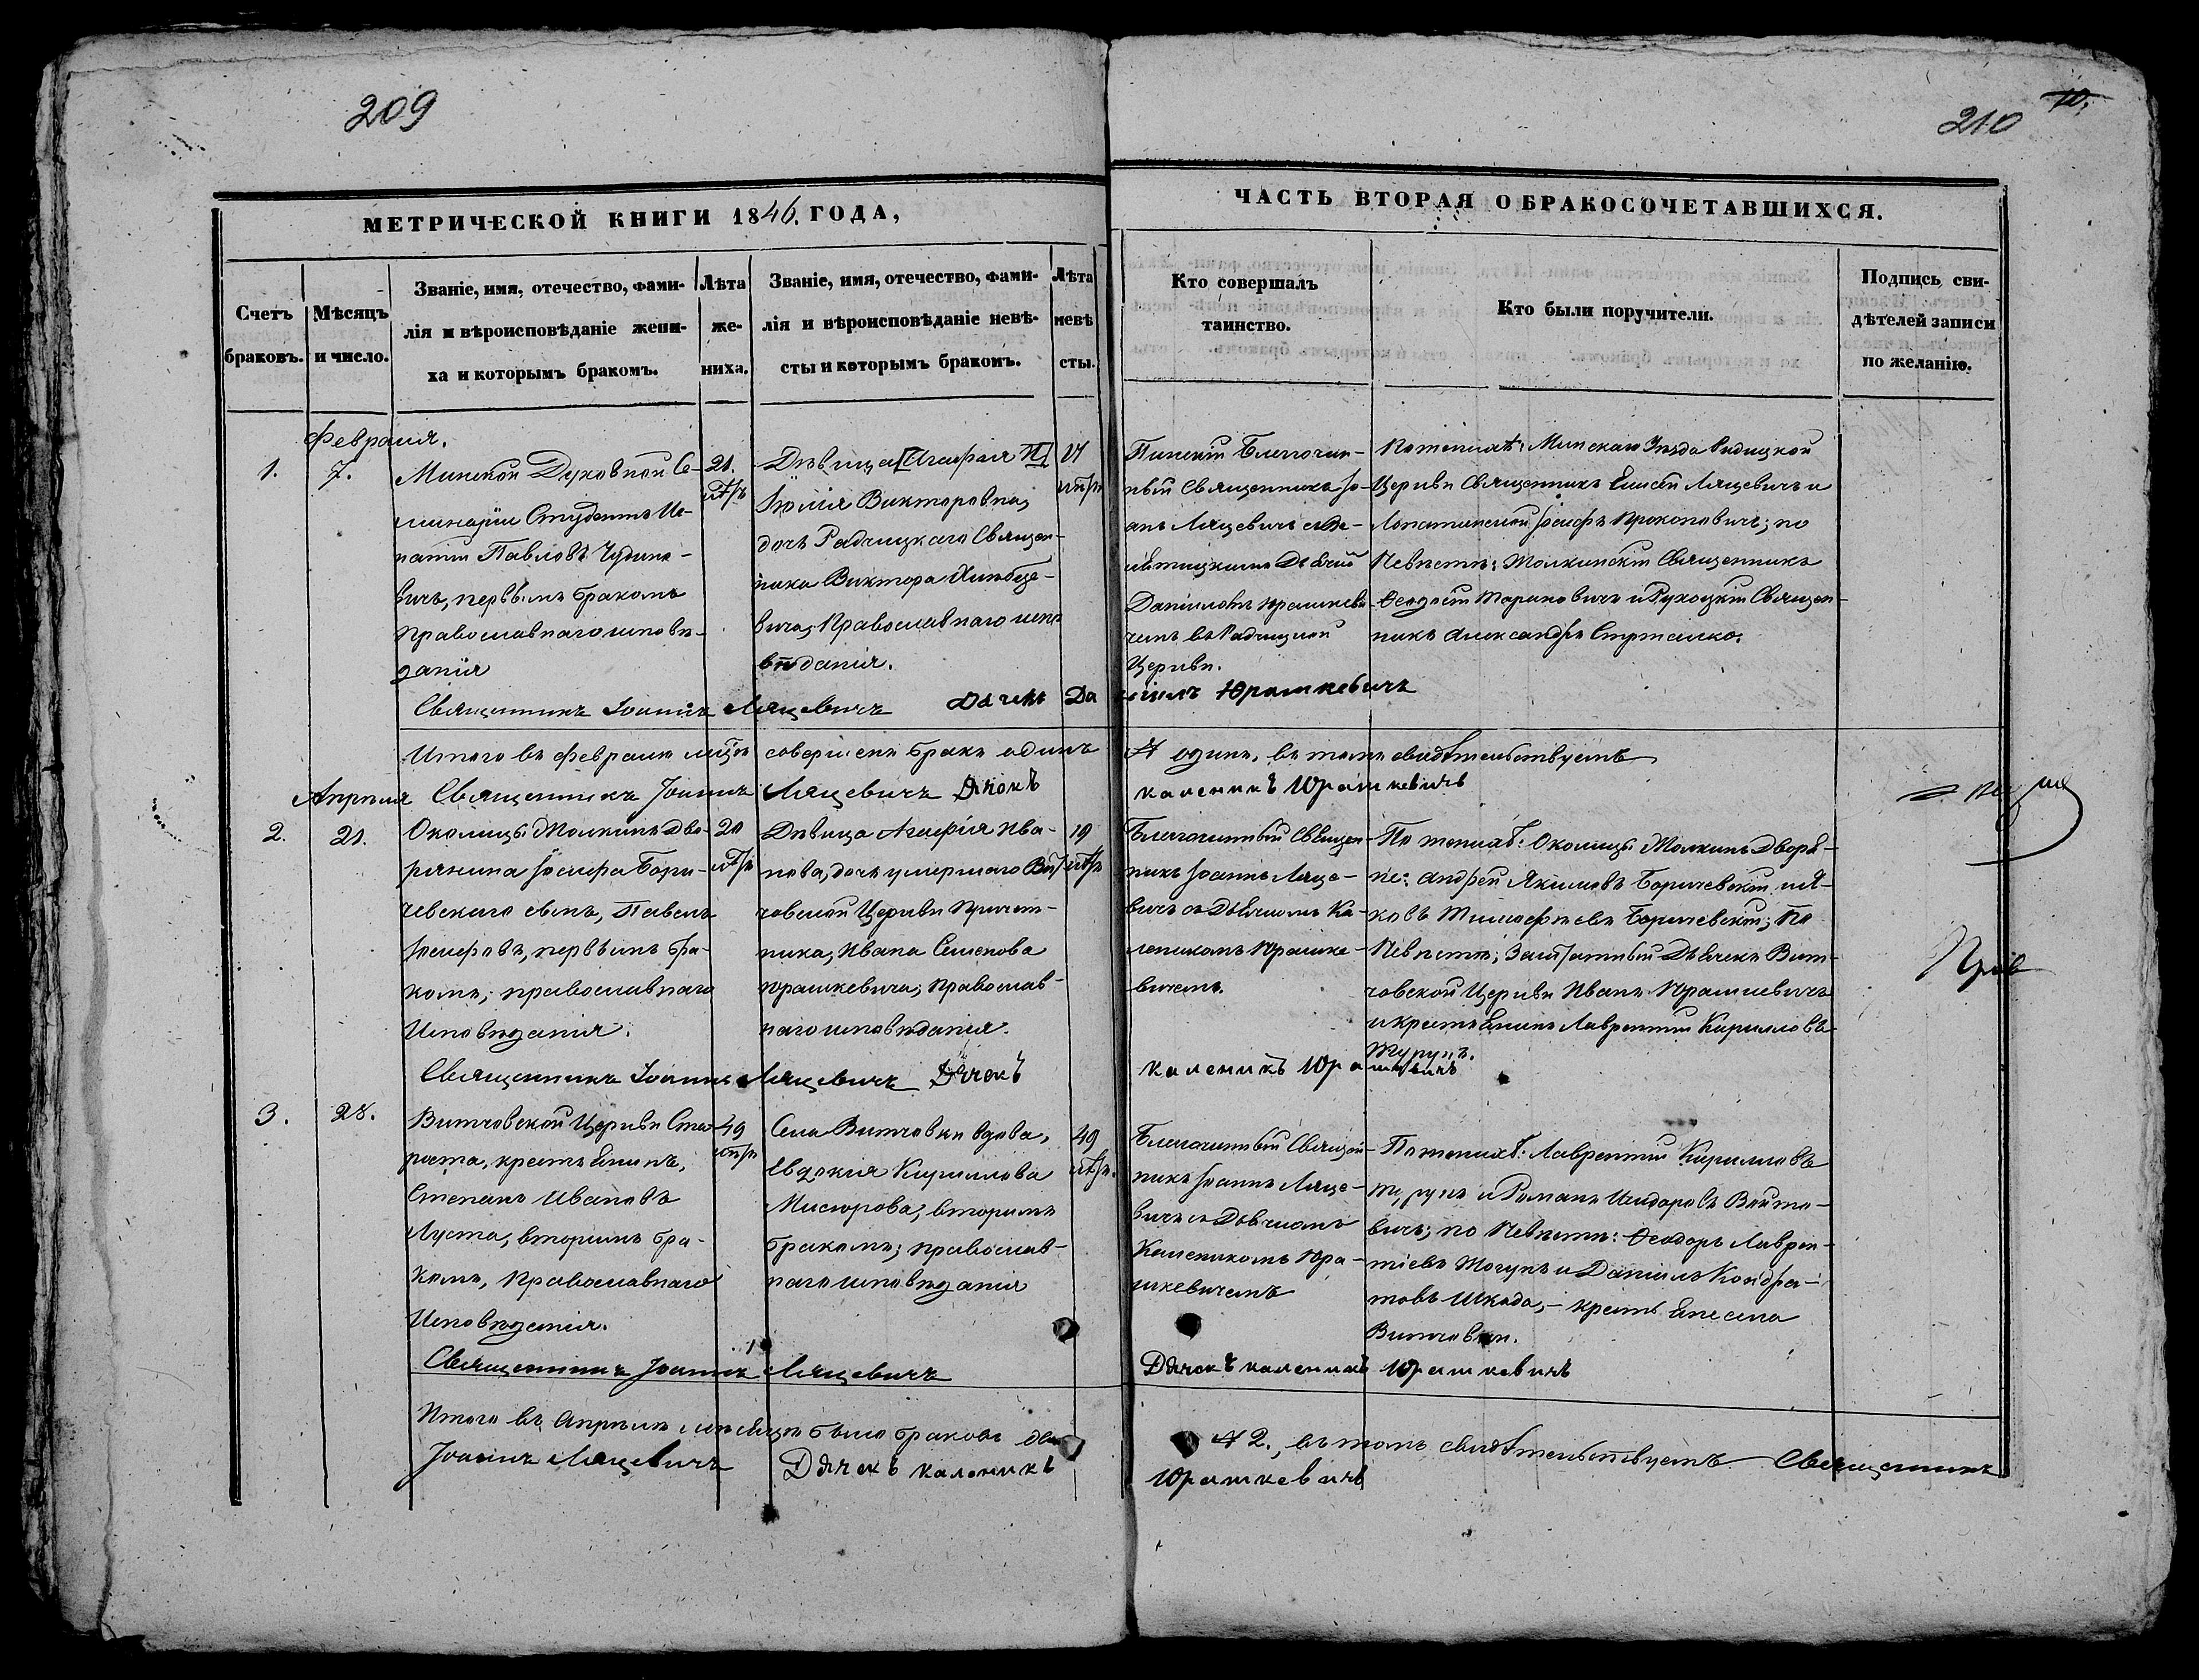 209
210
10.
МЕТРИЧЕСКОЙ КНИГИ 1846. ГОДА,
ЧАСТЬ ВТОРАЯ О БРАКОСОЧЕТАВШИХСЯ.
Счетъ
браковъ.
Мѣсяцъ
и число.
Званіе, имя, отечество, фами-
лія и вѣроисповѣданіе жени-
ха и которымъ бракомъ.
Лѣта
же-
ниха.
Званіе, имя, отечество, фами-
лія и вѣроисповѣданіе невѣ-
сты и которымъ бракомъ.
Лѣта
невѣ
сты.
Кто совершалъ
таинство.
Кто были поручители.
Подпись сви-
дѣтелей записи
по желанію.
Февраля.
1.
7.
Минской Духовной Се-
минаріи Студентъ Иг-
натій Павловъ
вичъ, первымъ бракомъ
православнаго исповѣ-
данія
21.
лѣтъ
Дѣвица [Агафія И]
Юлія Викторовна,
дочь Радчицкаго Священ-
ника Виктора
вича, Православнаго испо
вѣданія.
лѣтъ
Пинскій Благочин-
ный Священникъ Іо-
аннъ Ляцевичъ
Даніиломъ Юрашкеви-
чемъ въ Радчицкой
Церкви.
По женихѣ: Минскаго Уѣзда
Церкви Священникъ Елисей Ляцевичъ и
Іосифъ Прокоповичъ; по
Невѣстѣ: Молкинскій Священникъ
Ѳеодосій Тарановичъ и Священ-
никъ Александръ
Священникъ Іоаннъ Ляцевичъ Дячекъ Даніилъ Юрашкевичъ
Итого въ Февралѣ мѣсяцѣ совершенъ бракъ одинъ
№ одинъ, въ томъ свидѣтельствуетъ
Апрѣля
Священникъ Іоаннъ Ляцевичъ Дячокъ
каленикъ Юрашкевичъ
2.
21.
Околицы Молкинъ Дво-
рянина Іосифа Бори-
чевскаго сынъ, Павелъ
Іосифовъ, первымъ бра-
комъ, православнаго
Исповѣданія.
20
лѣтъ
Дѣвица Агафія Ива-
нова, дочь умершаго Вит-
човской Церкви Причет-
ника, Ивана Семенова
Юрашкевича, православ-
наго исповѣданія.
19
лѣтъ
Благочинный Священ-
никъ Іоаннъ Ляце-
вичъ съ Дьячкомъ Ка-
леникомъ Юрашке-
вичемъ.
По женихѣ: Околицы Молкинъ Дворя-
не: Андрей Якимовъ Боричевскій и Я-
ковъ Тимофѣевъ Боричевскій; По
Невѣстѣ; Заштатный Дьячекъ Вит-
човской Церкви Иванъ Юрашкевичъ
и крестьянинъ Лаврентій Кирилловъ
Журунъ.
Священникъ Іоаннъ Ляцевичъ Дячекъ
каленикъ Юрашкевичъ
3.
28.
Витчовской Церкви Ста-
роста, крестьянинъ,
Степанъ Ивановъ
Луста, вторымъ бра-
комъ, Православнаго
Исповѣданія.
49
лѣтъ
Села Витчовки вдова,
Евдокія Кириллова
Мисюрова, вторымъ
бракомъ; православ-
наго исповѣданія
49
лѣтъ.
Благочинный Священ-
никъ Іоаннъ Ляце-
вичъ съ Дьячкомъ
Каленикомъ Юра-
шкевичемъ
По женихѣ: Лаврентій Кирилловъ
Журунъ и Романъ Исидоровъ Войто-
вичъ; по Невѣстѣ: Ѳеодоръ Лаврен-
тіевъ и Даніилъ Кондра-
товъ Шкода, - крестьяне села
Витчовки.
Священникъ Іоаннъ Ляцевичъ
Дячекъ каленикъ Юрашкевичъ
Итого въ Апрѣлѣ мѣсяцѣ было браковъ два
№ 2., въ томъ свидѣтельствуетъ Священникъ
Іоаннъ Ляцевичъ Дячекъ каленикъ
Юрашкевичъ